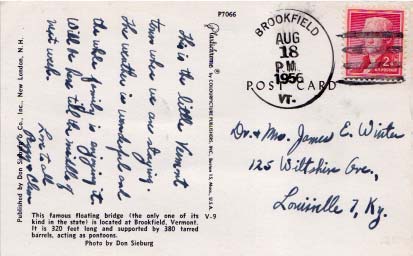 P7066
Published by Don Sieburg Co., Inc., New London, N.H.
Plastichrome® by COLOURPICTURE PUBLISHERS, INC., Boston 15, Mass., U.S.A.
This is the little Vermont
town where we are staying.
The weather is wonderful and
the whole family is enjoying it.
Will be here til the middle of
next week.
Love to all
Peggy &
BROOKFIELD
AUG
18
P.M.
1956
VT.
POST CARD
2¢
U.S. POSTAGE
Dr. & Mrs. James E. Winter
125 Wiltshire Ave.,
Louisville 7, Ky.
This famous floating bridge (the only one of its V-9
kind in the state) is located at Brookfield, Vermont.
It is 320 feet long and supported by 380 tarred
barrels, acting as pontoons.
Photo by Don Sieburg